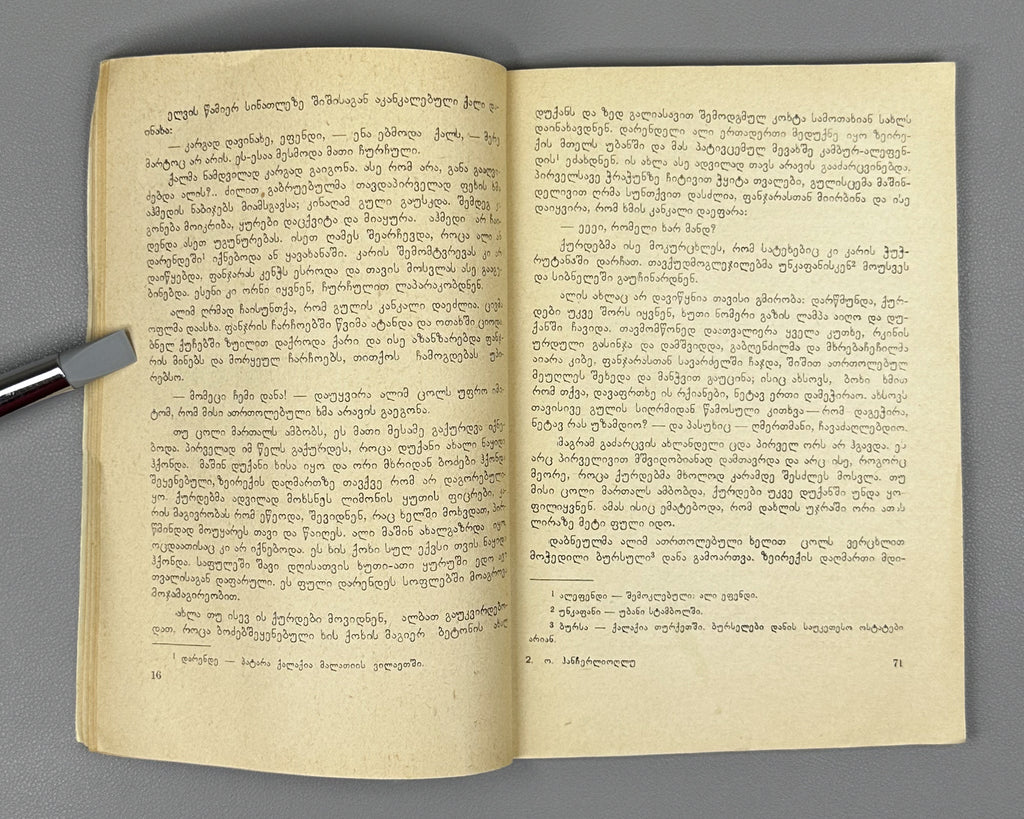 ელვის წამიერ სინათლეზე შიშისაგან აკანკალებული ქალი და-
ინახა:
— კარგად დავინახე, ეფენდი, — ენა ებმოდა ქალს, — მერე
მარტოც არ არის. ეს-ესაა მესმოდა მათი ჩურჩული.
ქალმა ნამდვილად კარგად გაიგონა. ასე რომ არა, განა
ძებდა ალის?.. ძილით გაბრუებულმა თავდაპირველად ფეხის ხმა
აჰმედის ნაბიჯებს მიამსგავსა; კინაღამ გული გაუსკდა. შემდეგ
გონება მოიკრიბა, ყურები დაცქვიტა და მიაყურა. აჰმედი არ ჩაი-
დენდა ასეთ უგუნურებას. ისეთ ღამეს შეარჩევდა, როცა ალი ან
დარენდეში¹ იქნებოდა ან ყავახანაში. კარის შემომტვრევას კი არ
დაიწყებდა, ფანჯარას კენჭს ესროდა და თავის მოსვლას ასე
ბინებდა. ესენი კი ორნი იყვნენ, ჩურჩულით ლაპარაკობდნენ.
ალიმ ღრმად ჩაისუნთქა, რომ გულის კანკალი დაეძლია. ცივმა
ოფლმა დაასხა. ფანჯრის ჩარჩოებში წვიმა ატანდა და ოთახში
ბნელ ქუჩებში ზუილით დაქროდა ქარი და ისე აზანზარებდა ფანჯ-
რის მინებს და მორყეულ ჩარჩოებს, თითქოს ჩამოგდებას უპი-
რებსო.
— მომეცი ჩემი დანა! — დაუყვირა ალიმ ცოლს უფრო იმი-
ტომ, რომ მისი ათრთოლებული ხმა არავის გაეგონა.
თუ ცოლი მართალს ამბობს, ეს მათი მესამე გაქურდვა იქნე-
ბოდა. პირველად იმ წელს გაქურდეს, როცა დუქანი ახალი ნაყიდი
ჰქონდა. მაშინ დუქანი ხისა იყო და ორი მხრიდან ბოძები ჰქონდა
შეყენებული, ზეირექის დაღმართზე თავქვე რომ არ დაგორებულ-
იყო. ქურდებმა ადვილად მოხსნეს ლიმონის ყუთის ფიცრები, კა-
რის მაგივრობას რომ ეწეოდა, შევიდნენ, რაც ხელში მოხვდათ, პირ-
წმინდად მოუყარეს თავი და წაიღეს. ალი მაშინ ახალგაზრდა იყო,
ოცდაათისაც კი არ იქნებოდა. ეს ხის ქოხი სულ ექვსი თვის ნაყიდი
ჰქონდა. საფულეში შავი დღისათვის ხუთი-ათი ყურუში ედო
თვალისაგან დაფარული. ეს ფული დარენდეს სოფლებში მოაგროვა
მოჯამაგირეობით.
ახლა თუ ისევ ის ქურდები მოვიდნენ, ალბათ გაუკვირდებო-
დათ, როცა ბოძებშეყენებული ხის ქოხის მაგიერ ბეტონის ახალ
¹ დარენდე — პატარა ქალაქია მალათიის ვილაეთში.
16
დუქანს და ზედ გალიასავით შემოდგმულ კოხტა სამოთახიან სახლს
დაინახავდნენ. დარენდელი ალი ერთადერთი მედუქნე იყო ზეირე-
ქის მთელს უბანში და მას პატივცემულ მევახშე კამბურ-ალეფენ-
დის¹ ეძახდნენ. ის ახლა ასე ადვილად თავს არავის გააძარცვინებდა.
პირველსავე ჭრაჭუნზე ჩიტივით ჭყიტა თვალები, გულისცემა მაშინ-
დელივით ღრმა სუნთქვით დასძლია, ფანჯარასთან მიირბინა და ისე
დაიყვირა, რომ ხმის კანკალი დაეფარა:
— ეეეი, რომელი ხარ მანდ?
ქურდებმა ისე მოკურცხლეს, რომ სატეხებიც კი კარის ჭუჭ-
რუტანაში დარჩათ. თავქუდმოგლეჯილებმა უნკაფანისკენ² მოუსვეს
და სიბნელეში გაუჩინარდნენ.
ალის ახლაც არ დავიწყნია თავისი გმირობა: დარწმუნდა, ქურ-
დები უკვე შორს იყვნენ, ხუთი ნომერი გაზის ლამპა აიღო და დუ-
ქანში ჩავიდა. თავმომწონედ დაათვალიერა ყველა კუთხე, რკინის
ურდული გასინჯა და დამშვიდდა, გაბღენძილმა და მხრებაჩეჩილმა
აიარა კიბე, ფანჯარასთან სავარძელში ჩაჯდა, შიშით ათრთოლებულ
მეუღლეს შეხედა და მანჭვით გაუცინა; ისიც ახსოვს, ბოხი ხმით
რომ თქვა, დავაფრთხე ის რქიანები, ნეტავ ერთი დამეჭირაო. ახსოვს
თავისივე გულის სიღრმიდან წამოსული კითხვა — რომ დაგეჭირა,
ნეტავ რას უზამდიო? — და პასუხიც — ღმერთმანი, ჩავაძაღლებდიო.
მაგრამ გაძარცვის ახლანდელი ცდა პირველ ორს არ ჰგავდა. ეს
არც პირველივით მშვიდობიანად დამთავრდა და არც ისე, როგორც
მეორე, როცა ქურდებმა მხოლოდ კარამდე შესძლეს მოსვლა. თუ
მისი ცოლი მართალს ამბობდა, ქურდები უკვე დუქანში უნდა ყო-
ფილიყვნენ. ამას ისიც ემატებოდა, რომ დახლის უჯრაში ორი ათას
ლირაზე მეტი ფული იდო.
დაბნეულმა ალიმ ათრთოლებული ხელით ცოლს ვერცხლით
მოჭედილი ბურსული³ დანა გამოართვა. ზეირექის დაღმართი მდი-
¹ ალეფენდი — შემოკლებული: ალი ეფენდი.
² უნკაფანი — უბანი სტამბოლში.
³ ბურსა — ქალაქია თურქეთში. ბურსელები დანის საუკეთესო ოსტატები
არიან.
2. ო. ჰანჩერლიოღლუ
71